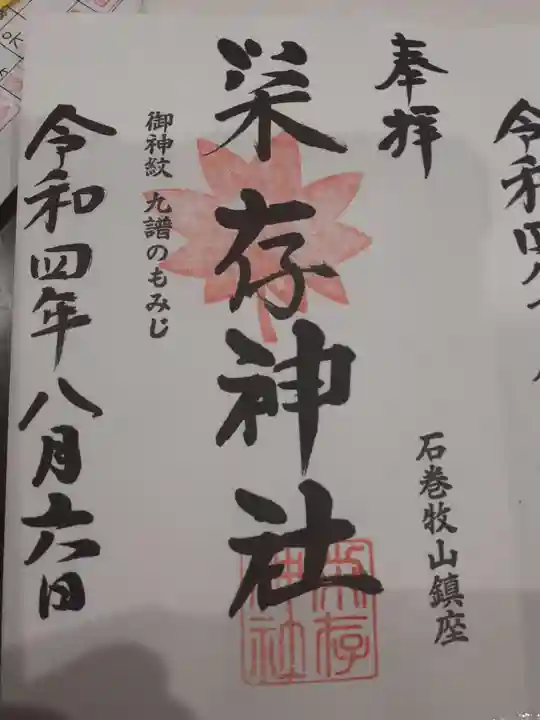 奉拝
石巻牧山鎮座
栄存神社
栄存
神社
御神紋 九譜のもみじ
令和四年八月六日